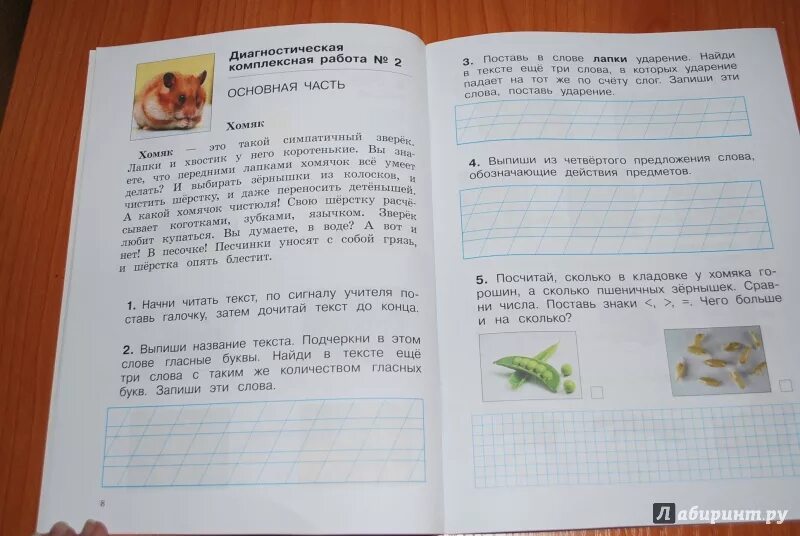 Диагностическая
комплексная работа № 2
ОСНОВНАЯ ЧАСТЬ
Хомяк
Хомяк — это такой симпатичный зверёк.
Лапки и хвостик у него коротенькие. Вы зна-
ете, что передними лапками хомячок всё умеет
делать? И выбирать зёрнышки из колосков, и
чистить шёрстку, и даже переносить детёнышей.
А какой хомячок чистюля! Свою шёрстку расчё-
сывает коготками, зубками, язычком. Зверёк
любит купаться. Вы думаете, в воде? А вот и
нет! В песочке! Песчинки уносят с собой грязь,
и шёрстка опять блестит.
1. Начни читать текст, по сигналу учителя по-
ставь галочку, затем дочитай текст до конца.
2. Выпиши название текста. Подчеркни в этом
слове гласные буквы. Найди в тексте ещё
три слова с таким же количеством гласных
букв. Запиши эти слова.
8
3. Поставь в слове лапки ударение. Найди
в тексте ещё три слова, в которых ударение
падает на тот же по счёту слог. Запиши эти
слова, поставь ударение.
4. Выпиши из четвёртого предложения слова,
обозначающие действия предметов.
5. Посчитай, сколько в кладовке у хомяка го-
рошин, а сколько пшеничных зёрнышек. Срав-
ни числа. Поставь знаки <, >, =. Чего больше
и на сколько?
Лабиринт.ру